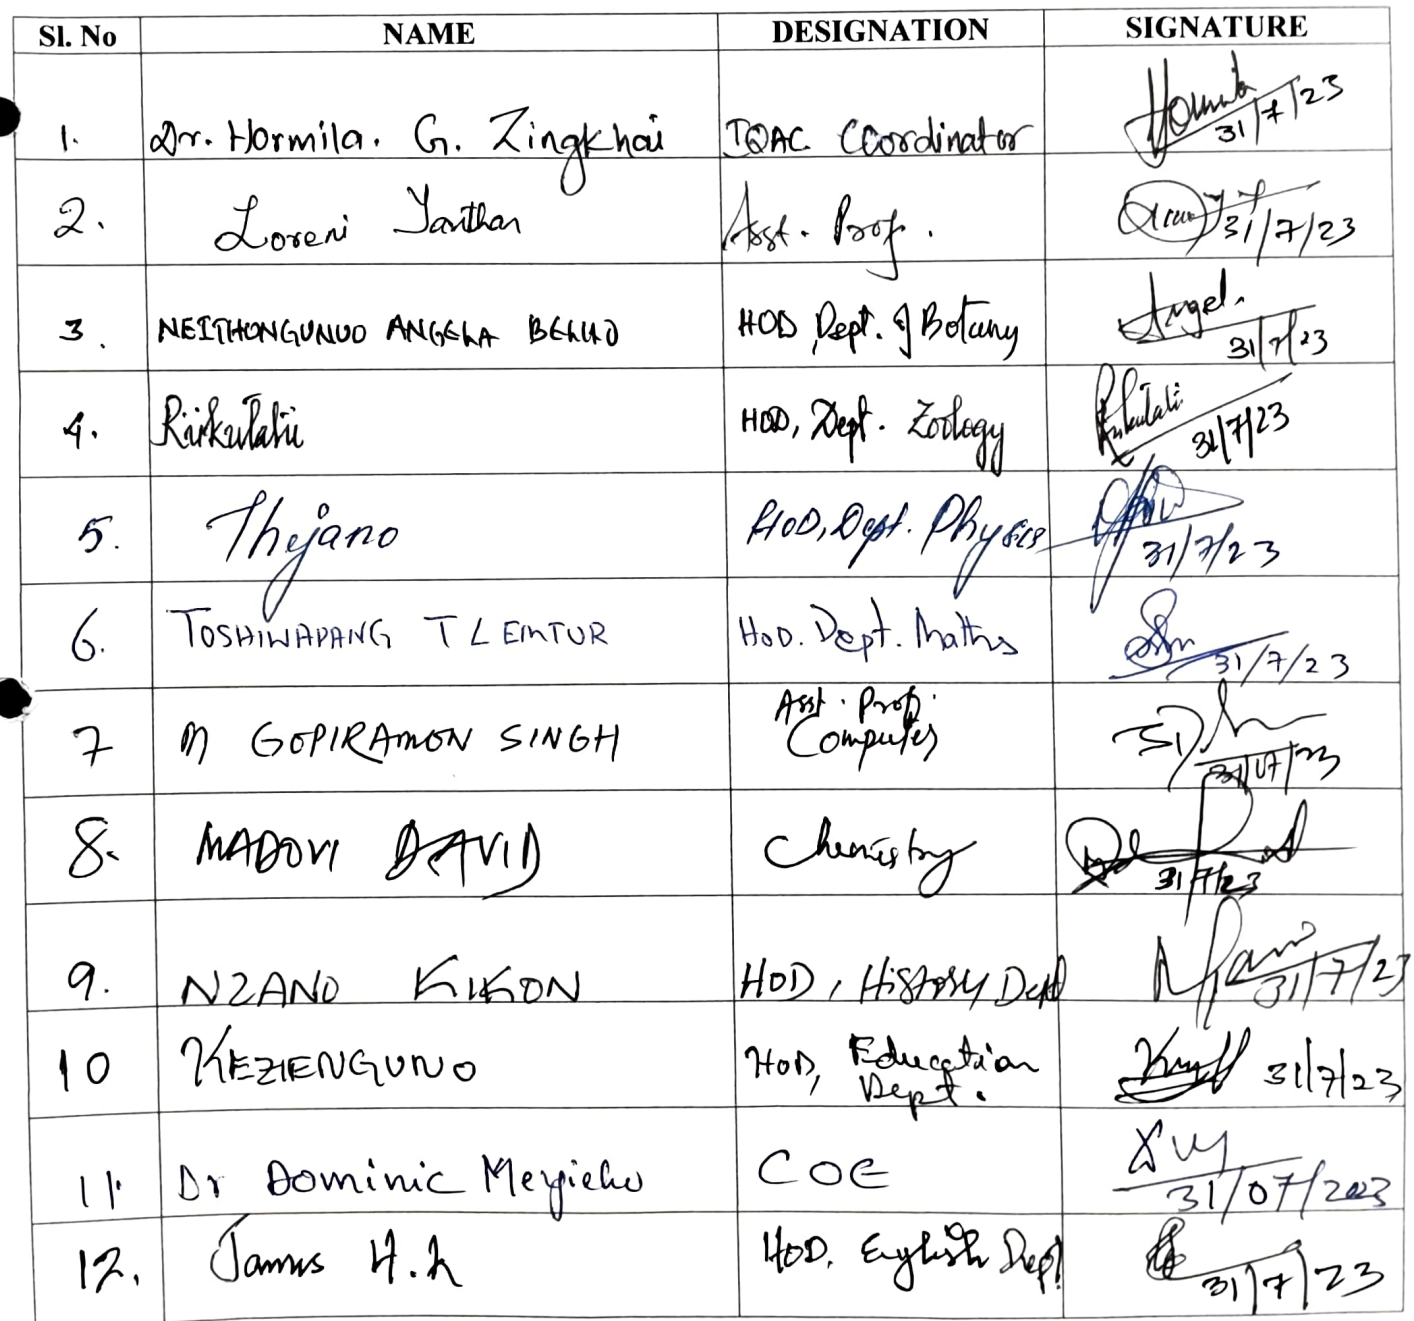 Sl. No NAME DESIGNATION SIGNATURE
1. Dr. Hormila. G. Zingkhai IQAC Coordinator Hormila 31/7/23
2. Loreni Yanthan Asst. Prof. 31/7/23
3. NEITHONGUNUO ANGELA BELHO HOD, Dept. of Botany Angel. 31/7/23
4. Rükulatü HOD, Dept. Zoology 31/7/23
5. Thejano HOD, Dept. Physics 31/7/23
6. TOSHIWAPANG T LEMTUR HOD. Dept. Maths 31/7/23
7 M GOPIRAMON SINGH Asst. Prof.
Computer 31/07/23
8. MADOVI DAVID Chemistry 31/7/23
9. NZANO KIKON HOD, History Dept 31/7/23
10 KEZIENGUNO HOD, Education
Dept. 31/7/23
11. Dr Dominic Meyieho COE 31/07/2023
12. James H.K HOD. English Dept 31/7/23